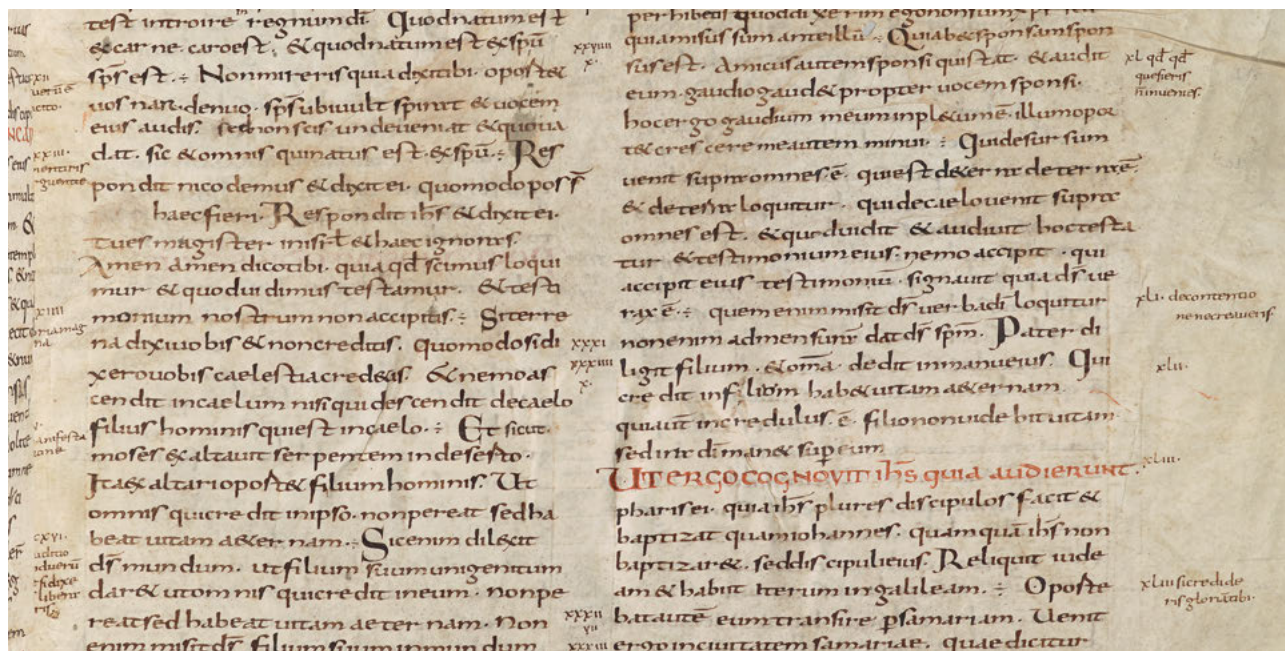 test introire regnum dī. Quod natum est
& carne. caro est. & quod natum est & spū
sps̄ est. Non mireris quia dixi tibi. oport&
vos nasc denuo. sps̄ ubi vult spirat & vocem
eius audis. sed non scis unde veniat & quo va
dat. sic & omnis qui natus est. ex spū. Res
pondit nicodemus & dixit ei. quomodo poss̄
haec fieri. Respondit ihs̄ & dixit ei.
tu es magister in isrl̄ & haec ignoras.
Amen amen dico tibi. quia qd̄ scimus loqui
mur & quod vidimus testamur. & testi
monium nostrum non accipitis. Si terre
na dixi vobis & non creditis. quomodo si di
xero vobis caelestia cred&is. & nemo as
cendit in caelum nisi qui descendit de caelo
filius hominis qui est in caelo. Et sicut
moses exaltavit serpentem in deserto.
Ita exaltari oport& filium hominis. Ut
omnis qui credit in ipso. non pereat sed ha
beat vitam a&ernam. Sic enim dilexit
ds̄ mundum. ut filium suum unigenitum
dar& ut omnis qui credit in eum. non pe
reat sed habeat vitam aeternam. Non
enim misit ds̄ filium suum in mundum
xxviiii
x.
xxxi
xxxiiii
x.
xxxii
vii
xxxiii
perhibetis quod dixerim ego non sum xp̄s
quia misus sum ante illū. Qui hab& sponsam spon
sus est. Amicus autem sponsi qui stat. & audit
eum. gaudio gaud& propter vocem sponsi.
hoc ergo gaudium meum inpl&um ē. illum opor
t& crescere me autem minui. Qui desursum
venit supra omnes. ē. qui est de terra de terra ē.
& de terra loquitur. qui de caelo venit supra
omnes est. & quod vidit & audivit hoc testa
tur & testimonium eius. nemo accipit. qui
accipit eius testimoniū. signavit quia ds̄ ve
rax ē. quem enim misit ds̄ verba dī loquitur
non enim ad mensuram dat ds̄ spm̄. Pater di
ligit filium. & omā. dedit in manu eius. Qui
credit in filium hab& vitam a&ernam.
qui aut̄ incredulus. ē. filio non videbit vitam
sed ira dī man& super eum.
UT ERGO COGNOVIT ihs̄ quia audierunt.
pharisei. quia ihs̄ plures discipulos facit &
baptizat quam iohannes. quamquā ihs̄ non
baptizar&. sed discipuli eius. Reliquit iude
am & habiit iterum in galileam. Oporte
bat autē eum transire p samariam. Venit
ergo in civitatem samariae. quae dicitur
xl. qd̄ qd̄
quesieris
n̄ invenies.
xli. de contentio
ne ne creaveris.
xlii.
xliii.
xliiii si credide
ris gloria tibi.